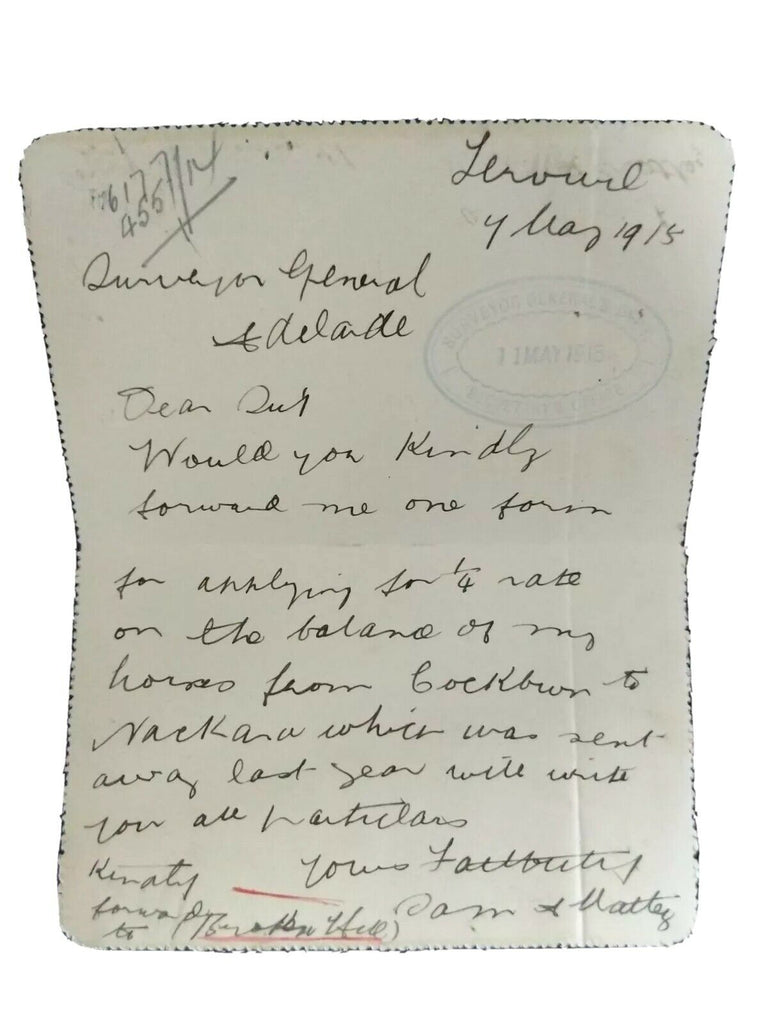 6177/14
455
Terowie
7 May 1915
Surveyor General
Adelaide
SURVEYOR GENERAL'S
11 MAY 1915
Dear Sir
Would you Kindly
forward me one form
for applying for 1/4 rate
on the balance of my
horses from Cockburn to
Nackara which was sent
away last year will write
you all particulars
Yours Faithfully
Kindly
forward
to (Broken Hill)
Sam Mattey